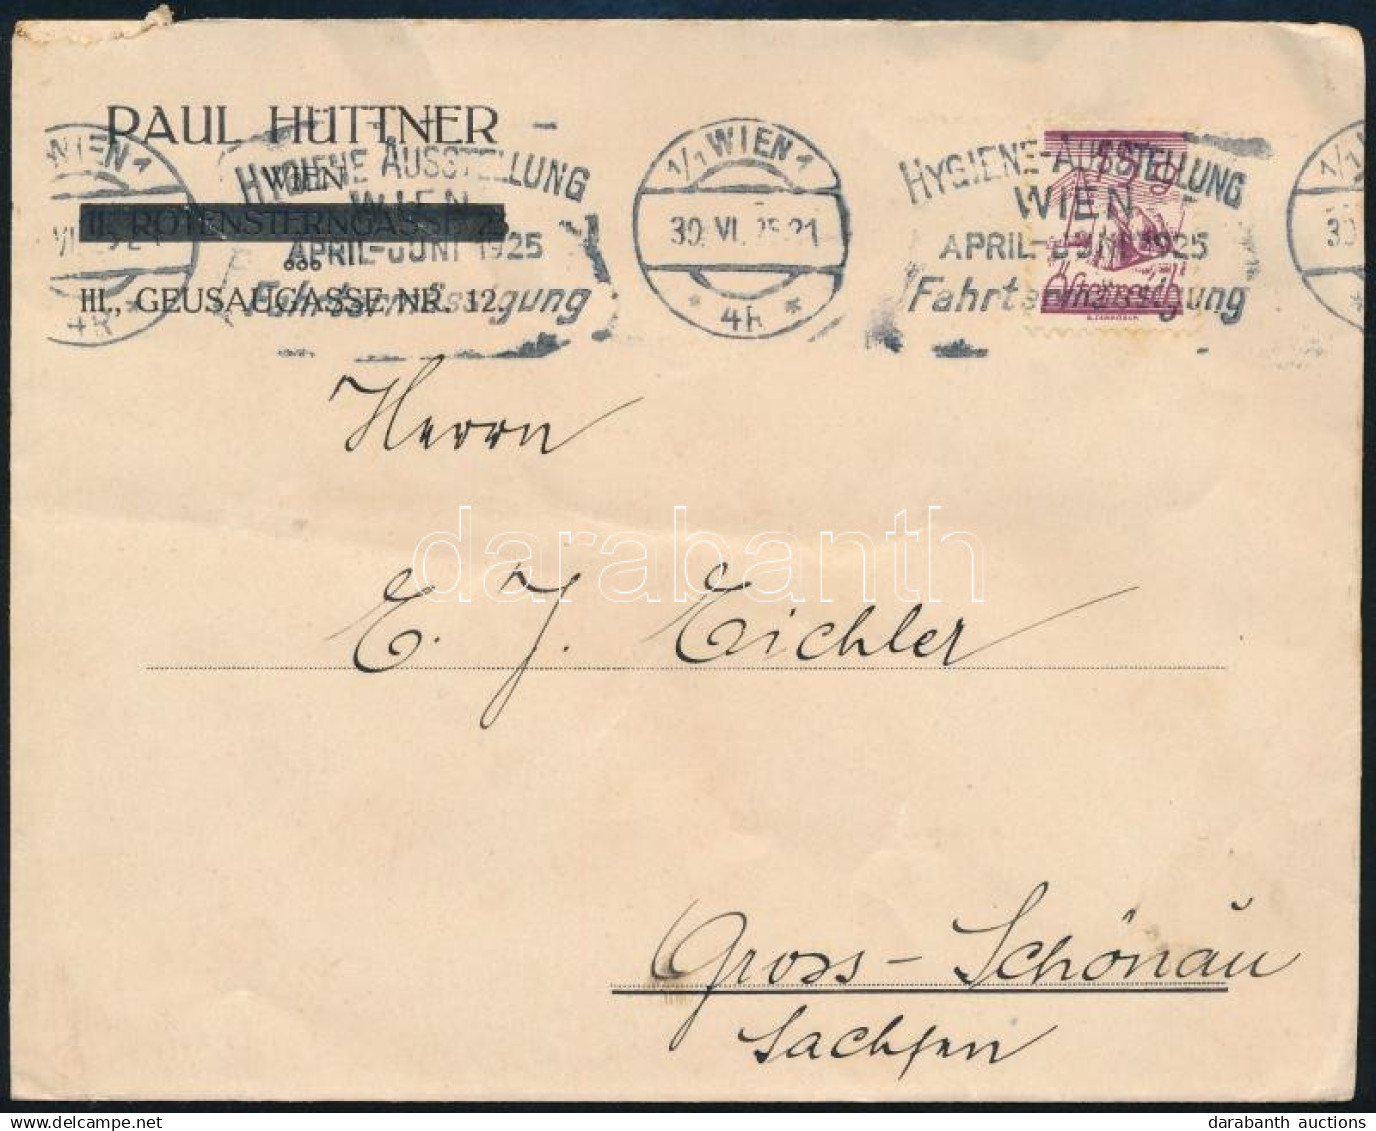 PAUL HÜTTNER
WIEN
II. ROTENSTERNGASSE
III., GEUSAUGASSE NR. 12.
WIEN 1
4R
HYGIENE AUSSTELLUNG
WIEN
APRIL-JUNI 1925
Fahrtermässigung
1/1 WIEN 1
30. VI. 25 21
* 4R *
HYGIENE-AUSSTELLUNG
WIEN
APRIL-JUNI 1925
Fahrtermässigung
1/1
30
Herrn
E. J. Eichler
Gross-Schönau
Sachsen
darabanth
darabanth auctions